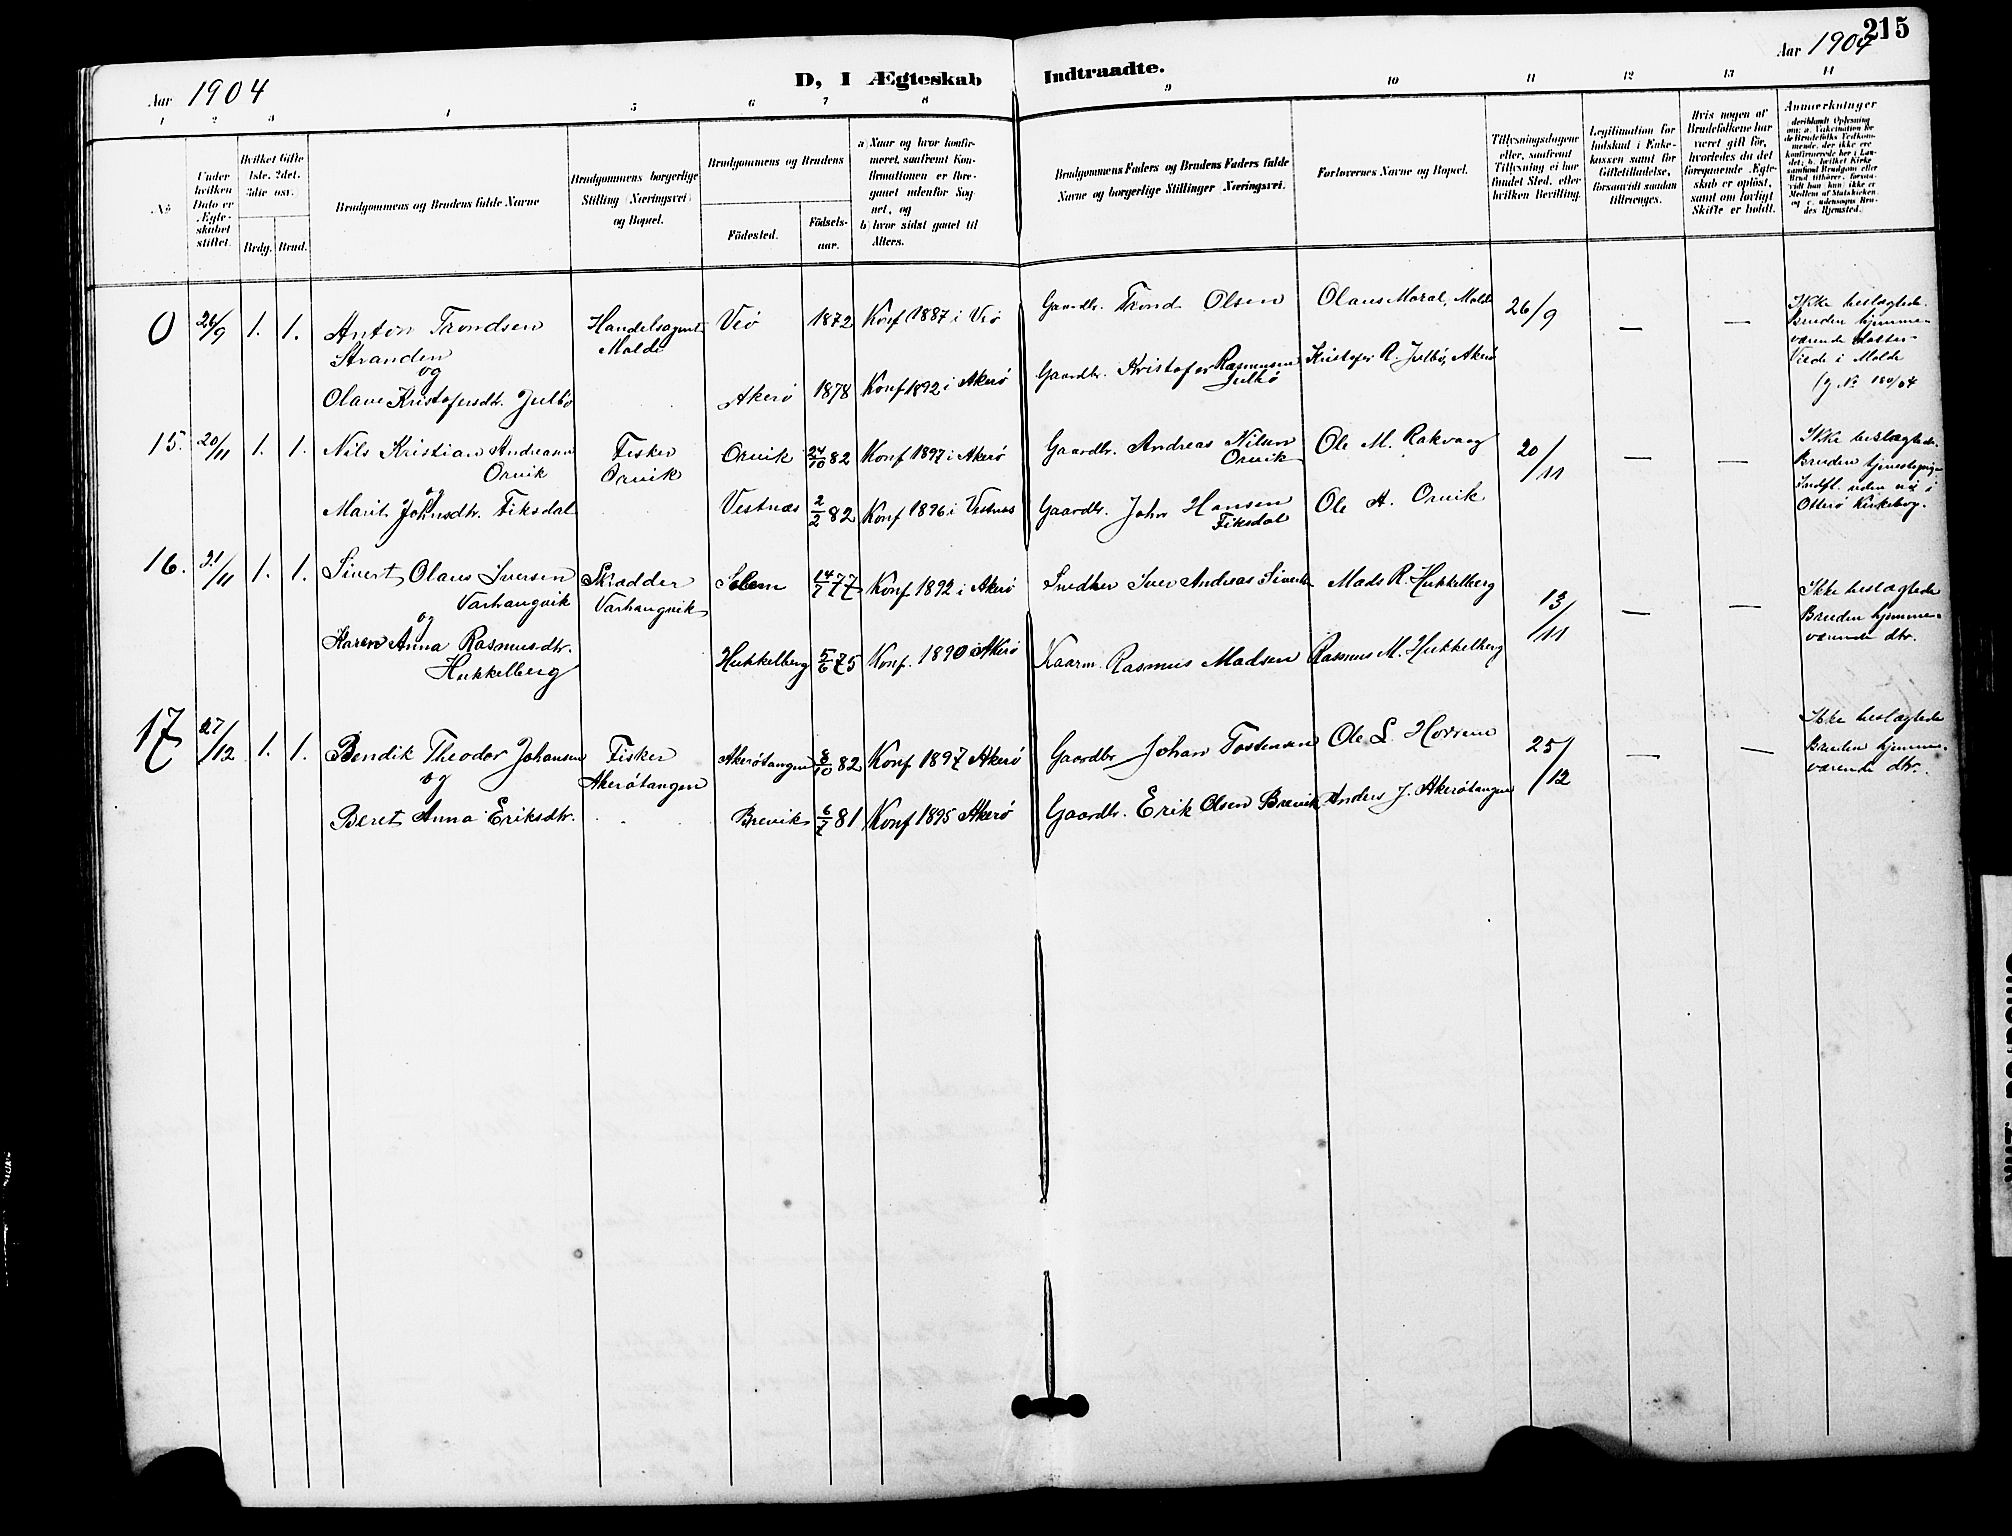 215
Aar 1904
D, I Ægteskab Indtraadte.
Aar 1904
1 2 3 4 5 6 7 8 9 10 11 12 13 14
No
Under hvilken Dato er Ægteskabet stiftet.
Hvilket Gifte 1ste. 2det. 3die osv.
Brdg. Brud.
Brudgommens og Brudens fulde Navne
Brudgommens borgerlige Stilling (Næringsvei) og Bopæl.
Brudgommens og Brudens
Födested.
Födsels-aar.
a) Naar og hvor konfirmeret, saafremt Konfirmationen er foregaaet udenfor Sognet, og
b) hvor sidst gaaet til Alters.
Brudgommens Faders og Brudens Faders fulde Navne og borgerlige Stillinger (Næringsvei.
Forlovernes Navne og Bopæl.
Tillysningsdagene eller, saafremt Tillysning ei har fundet Sted, efter hvilken Bevilling.
Legitimation for Indskud i Enkekassen samt for Giftetilladelse, forsaavidt saadan tiltrænges.
Hvis nogen af Brudefolkene har været gift för, hvorledes da det foregaaende Ægteskab er oplöst, samt om lovligt Skifte er holdt.
Anmærkninger
0 26/9 1. 1. Anton Trondsen Handelsagent Veö 1872 Konf 1887 i Veö Gaardbr. Trond Olsen Olaus Moral, Molde 26/9 — — Ikke beslægtede.
Stranden Molde Bruden hjemme-
og værende datter
Olave Kristofersdt. Julbö Akerö 1878 Konf 1892 i Akerö Gaardbr. Kristofer Rasmussen Julbö Kristofer R. Julbö, Akerö Viede i Molde
j No 180/04
15. 20/11 1. 1. Nils Kristian Andreasen Fisker Orvik 24/10 82 Konf 1897 i Akerö Gaardbr. Andreas Nilsen Ole M. Rakvaag 20/11 — — Ikke beslægtede.
Orvik Orvik Orvik Bruden tjenestepige
og Indfl. uden
Marit Johnsdtr. Fiksdal Vestnæs 2/2 82 Konf 1896 i Vestnæs Gaardbr. John Hansen Fiksdal Ole A. Orvik Otterö Kirkebog.
16. 21/11 1. 1. Sivert Olaus Iversen Skrædder Solem 14/7 77 Konf 1892 i Akerö Snedker Iver Andreas Sivertsen Mads R. Hukkelberg 13/11 — — Ikke beslægtede
Varhaugvik Varhaugvik Bruden hjemme-
og værende dtr.
Karen Anna Rasmusdtr. Hukkelberg 5/6 75 Konf. 1890 Akerö Kaarm. Rasmus Madsen Rasmus M. Hukkelberg
Hukkelberg
17 27/12 1. 1. Bendik Theodor Johansen Fisker Akerötangen 8/10 82 Konf 1897 Akerö Gaardbr Johan Tostensen Ole L. Horrem 25/12 — — Ikke beslægtede
og Akerötangen Bruden hjemme-
værende dtr.
Beret Anna Eriksdtr. Brevik 6/7 81 Konf 1895 Akerö Gaardbr. Erik Olsen Brevik Anders J. Akerötangen